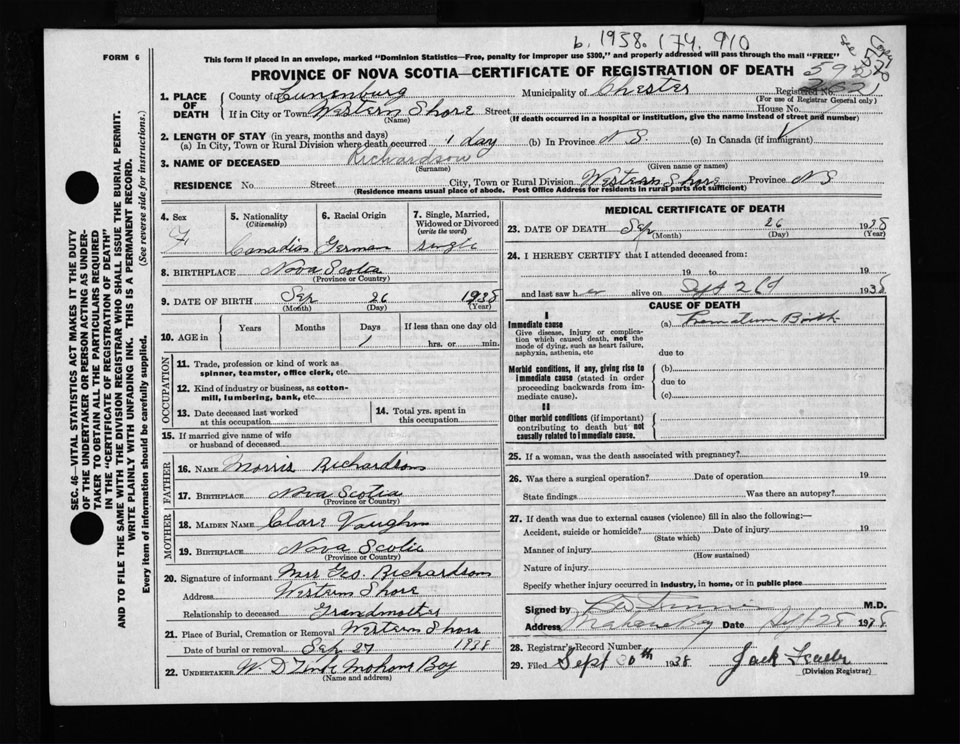 b. 1938. 174. 910
FORM 6
This form if placed in an envelope, marked "Dominion Statistics—Free, penalty for improper use $300," and properly addressed will pass through the mail "FREE"
PROVINCE OF NOVA SCOTIA—CERTIFICATE OF REGISTRATION OF DEATH
1. PLACE OF DEATH
County of Lunenburg Municipality of Chester Registered No.
(For use of Registrar General only)
If in City or Town Western Shore Street House No.
(Name) (If death occurred in a hospital or institution, give the name instead of street and number)
2. LENGTH OF STAY (in years, months and days)
(a) In City, Town or Rural Division where death occurred 1 day (b) In Province N S. (c) In Canada (if immigrant)
3. NAME OF DECEASED Richardson
(Surname) (Given name or names)
RESIDENCE No. Street City, Town or Rural Division Western Shore Province N S
(Residence means usual place of abode. Post Office Address for residents in rural parts not sufficient)
SEC. 46—VITAL STATISTICS ACT MAKES IT THE DUTY
OF THE UNDERTAKER OR PERSON ACTING AS UNDER-
TAKER TO OBTAIN ALL THE PARTICULARS REQUIRED
IN THE "CERTIFICATE OF REGISTRATION OF DEATH"
AND TO FILE THE SAME WITH THE DIVISION REGISTRAR WHO SHALL ISSUE THE BURIAL PERMIT.
WRITE PLAINLY WITH UNFADING INK. THIS IS A PERMANENT RECORD.
Every item of information should be carefully supplied. (See reverse side for instructions.)
4. Sex F
5. Nationality (Citizenship) Canadian
6. Racial Origin German
7. Single, Married, Widowed or Divorced (write the word) single
8. BIRTHPLACE Nova Scotia
(Province or Country)
9. DATE OF BIRTH Sep 26 1938
(Month) (Day) (Year)
10. AGE in Years Months Days If less than one day old
1 hrs. or min.
OCCUPATION
11. Trade, profession or kind of work as
spinner, teamster, office clerk, etc
12. Kind of industry or business, as cotton-
mill, lumbering, bank, etc
13. Date deceased last worked
at this occupation
14. Total yrs. spent in
this occupation
15. If married give name of wife
or husband of deceased
FATHER
16. NAME Morris Richardson
17. BIRTHPLACE Nova Scotia
(Province or Country)
MOTHER
18. MAIDEN NAME Clare Vaughn
19. BIRTHPLACE Nova Scotia
(Province or Country)
20. Signature of informant Mrs Geo. Richardson
Address Western Shore
Relationship to deceased Grandmother
21. Place of Burial, Cremation or Removal Western Shore
Date of burial or removal Sep 27 1938
22. UNDERTAKER W. D Mahone Bay
(Name and address)
MEDICAL CERTIFICATE OF DEATH
23. DATE OF DEATH Sep 26 1938
(Month) (Day) (Year)
24. I HEREBY CERTIFY that I attended deceased from:
19 to 19
and last saw her alive on Sept 26 1938
CAUSE OF DEATH
I
Immediate cause (a) Premature Birth
Give disease, injury or complica-
tion which caused death, not the
mode of dying, such as heart failure,
asphyxia, asthenia, etc due to
Morbid conditions, if any, giving rise to (b)
immediate cause (stated in order due to
proceeding backwards from im-
mediate cause). (c)
II
Other morbid conditions (if important)
contributing to death but not
causally related to immediate cause.
25. If a woman, was the death associated with pregnancy?
26. Was there a surgical operation? Date of operation 19
State findings Was there an autopsy?
27. If death was due to external causes (violence) fill in also the following:—
Accident, suicide or homicide? Date of injury 19
(State which)
Manner of injury
(How sustained)
Nature of injury
Specify whether injury occurred in industry, in home, or in public place
Signed by M.D.
Address Mahone Bay Date Sept 28 1938
28. Registrar's Record Number
29. Filed Sept 30th 1938 Jack
(Division Registrar)